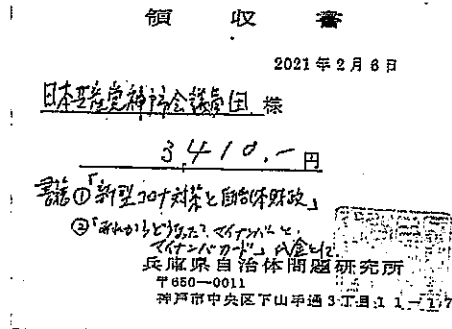 領収書
2021年2月6日
日本共産党神戸市会議員団 様
3,410.-円
書籍①「新型コロナ対策と自治体財政」
②「あれからどうなった?マイナンバーと
マイナンバーカード」代金として
兵庫県自治体問題研究所
〒650-0011
神戸市中央区下山手通3丁目11-17